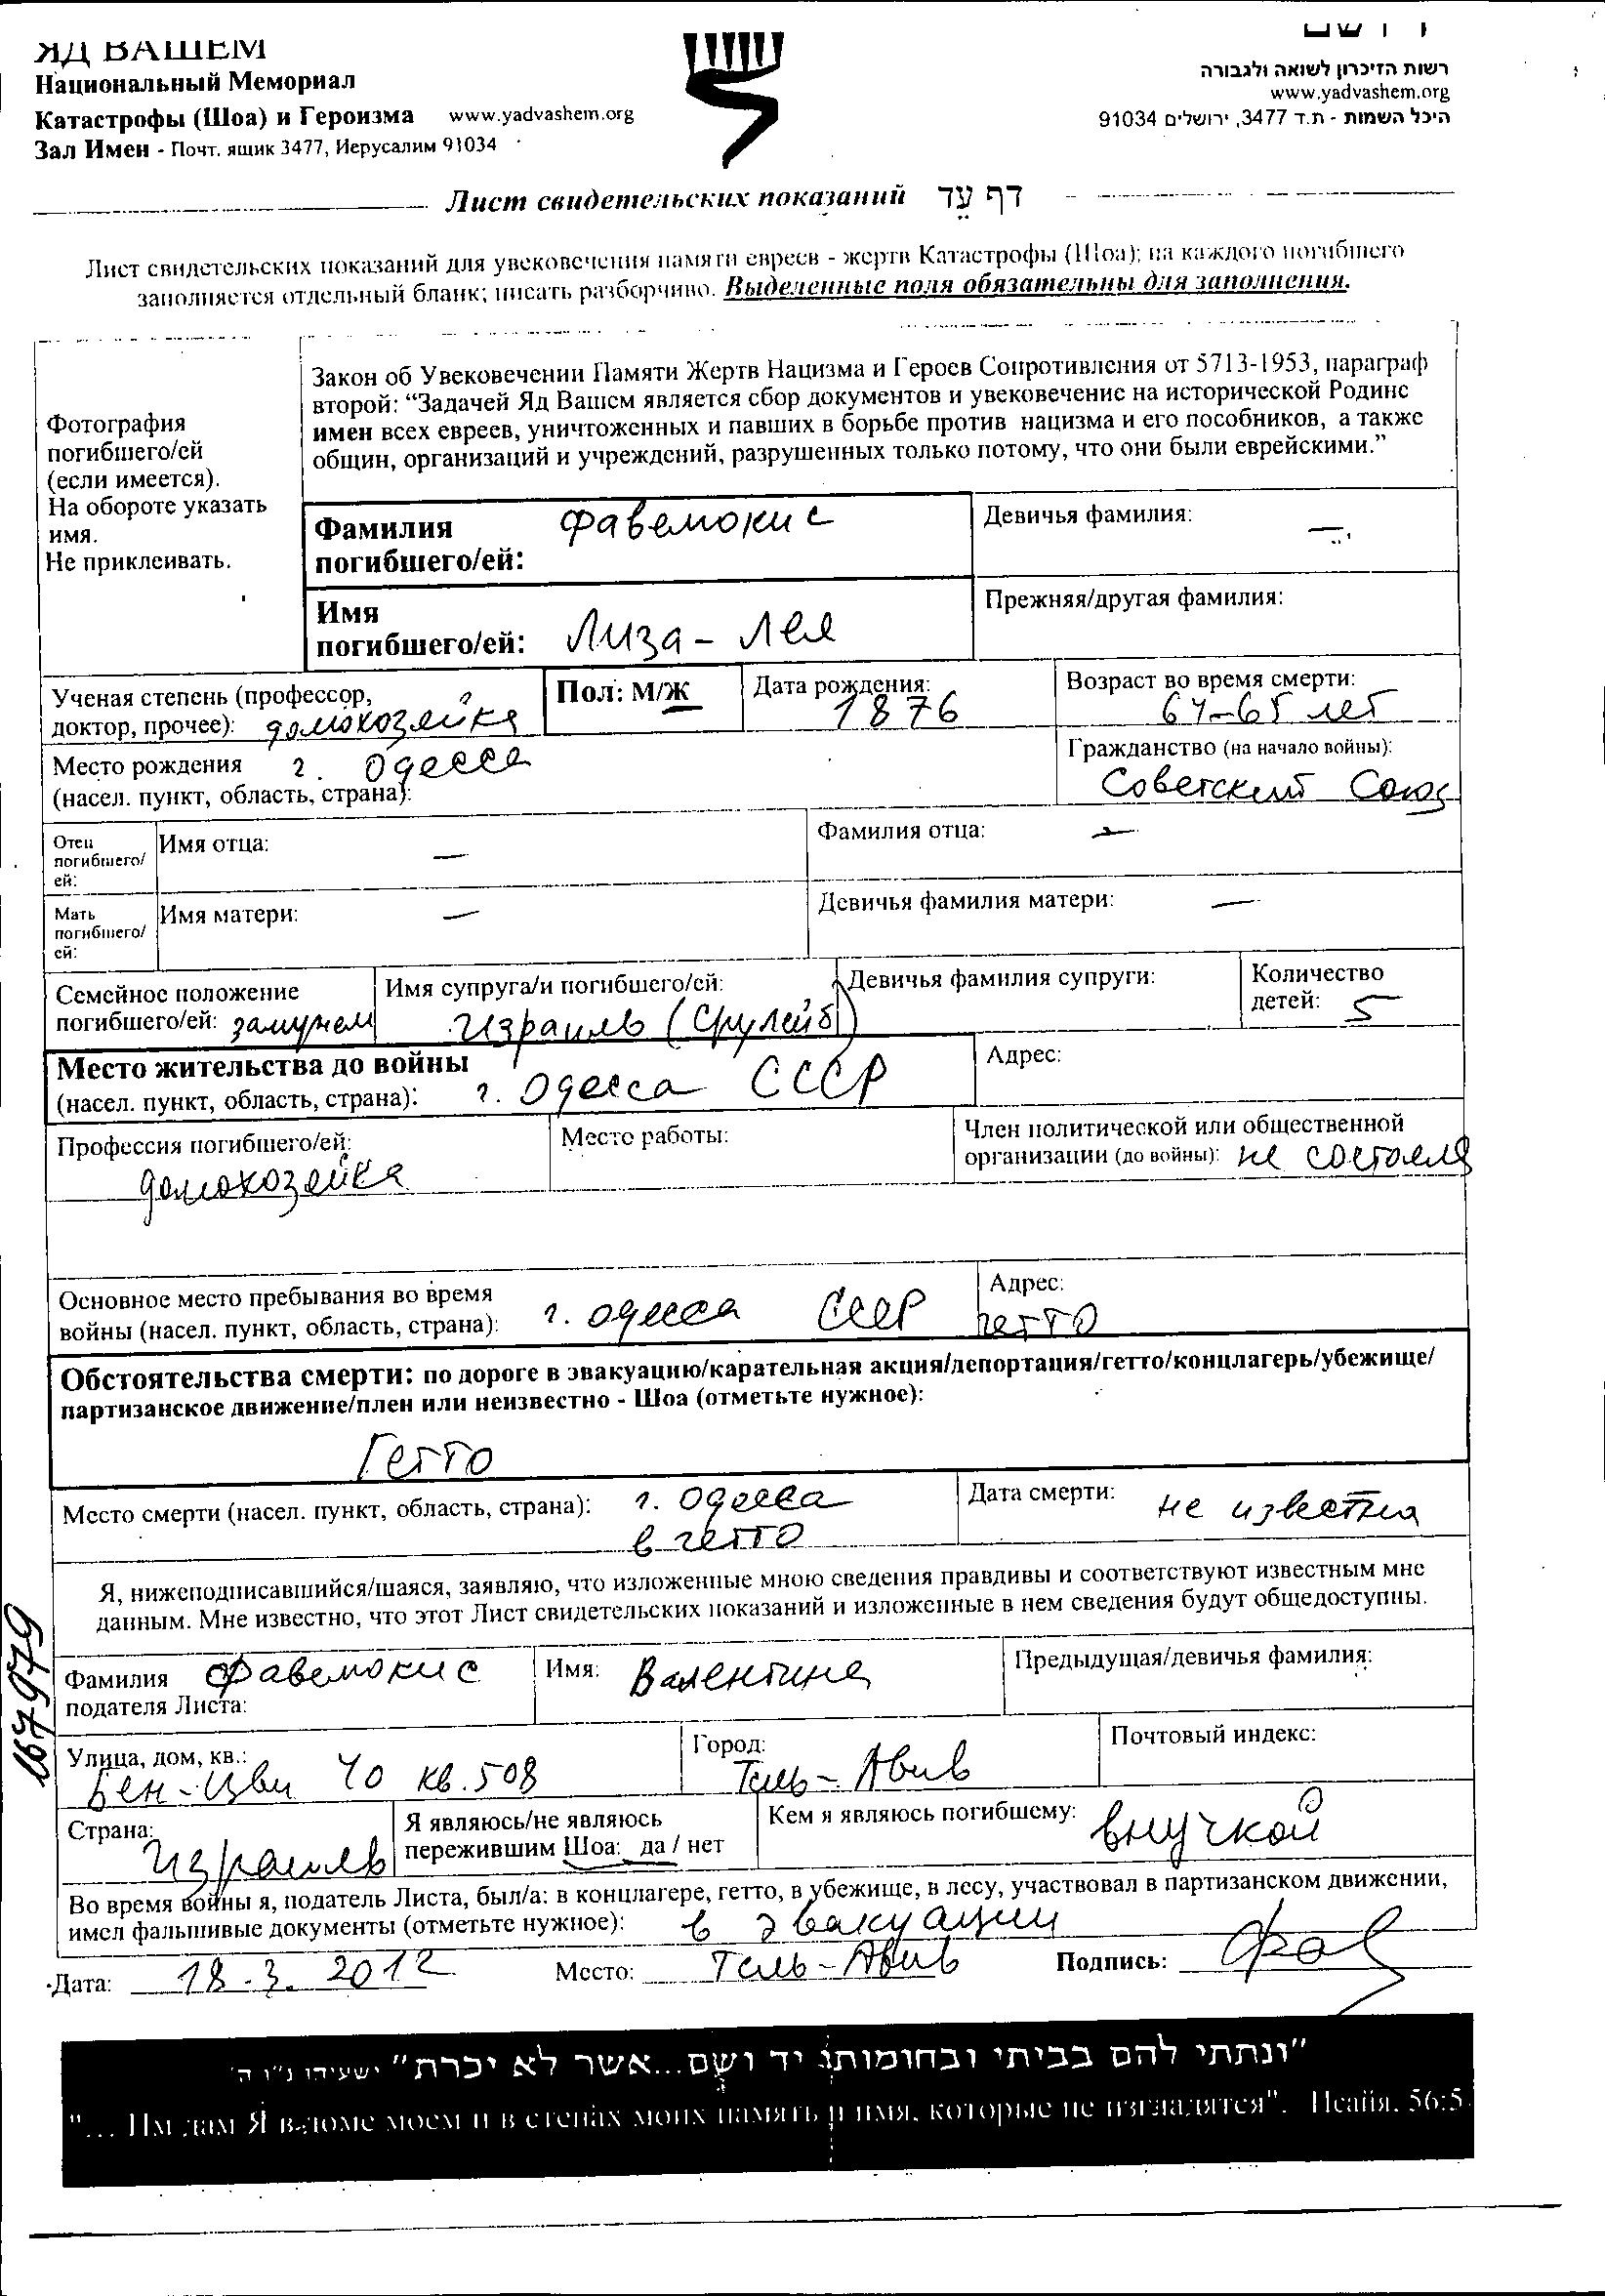 ЯД ВАШЕМ
Национальный Мемориал
Катастрофы (Шоа) и Героизма www.yadvashem.org
Зал Имен - Почт. ящик 3477, Иерусалим 91034
רשות הזיכרון לשואה ולגבורה
www.yadvashem.org
היכל השמות - ת.ד 3477, ירושלים 91034
Лист свидетельских показаний דף עֵד
Лист свидетельских показаний для увековечения памяти евреев - жертв Катастрофы (Шоа); на каждого погибшего
заполняется отдельный бланк; писать разборчиво. Выделенные поля обязательны для заполнения.
Фотография
погибшего/ей
(если имеется).
На обороте указать
имя.
Не приклеивать.
Закон об Увековечении Памяти Жертв Нацизма и Героев Сопротивления от 5713-1953, параграф
второй: “Задачей Яд Вашем является сбор документов и увековечение на исторической Родине
имен всех евреев, уничтоженных и павших в борьбе против нацизма и его пособников, а также
общин, организаций и учреждений, разрушенных только потому, что они были еврейскими.”
Фамилия
погибшего/ей: Фавемокис
Девичья фамилия: —
Имя
погибшего/ей: Лиза - Лея
Прежняя/другая фамилия:
Ученая степень (профессор,
доктор, прочее): домохозяйка
Пол: М/Ж
Дата рождения:
1876
Возраст во время смерти:
64-65 лет
Место рождения г. Одесса
(насел. пункт, область, страна):
Гражданство (на начало войны):
Советский Союз
Отец
погибшего/
ей:
Имя отца: —
Фамилия отца: —
Мать
погибшего/
ей:
Имя матери: —
Девичья фамилия матери: —
Семейное положение
погибшего/ей: замужем
Имя супруга/и погибшего/ей:
Израиль (Срулейб)
Девичья фамилия супруги:
Количество
детей: 5
Место жительства до войны
(насел. пункт, область, страна): г. Одесса СССР
Адрес:
Профессия погибшего/ей:
домохозяйка
Место работы:
Член политической или общественной
организации (до войны): не состояла
Основное место пребывания во время
войны (насел. пункт, область, страна): г. Одесса СССР
Адрес:
гетто
Обстоятельства смерти: по дороге в эвакуацию/карательная акция/депортация/гетто/концлагерь/убежище/
партизанское движение/плен или неизвестно - Шоа (отметьте нужное):
Гетто
Место смерти (насел. пункт, область, страна): г. Одесса
в гетто
Дата смерти: не известна
Я, нижеподписавшийся/шаяся, заявляю, что изложенные мною сведения правдивы и соответствуют известным мне
данным. Мне известно, что этот Лист свидетельских показаний и изложенные в нем сведения будут общедоступны.
167979
Фамилия Фавемокис
подателя Листа:
Имя: Валентина
Предыдущая/девичья фамилия:
Улица, дом, кв.:
Бен-Цви 40 кв. 508
Город:
Тель-Авив
Почтовый индекс:
Страна:
Израиль
Я являюсь/не являюсь
пережившим Шоа: да / нет
Кем я являюсь погибшему: внучкой
Во время войны я, податель Листа, был/а: в концлагере, гетто, в убежище, в лесу, участвовал в партизанском движении,
имел фальшивые документы (отметьте нужное): в эвакуации
Дата: 18.3.2012 Место: Тель-Авив Подпись:
"ונתתי להם בביתי ובחומותי יד ושם...אשר לא יכרת" ישעיהו נ"ו ה'
"... Им дам Я в доме моем и в стенах моих память и имя, которые не изгладятся". Исайя, 56:5